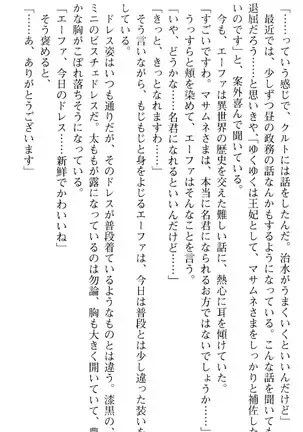 「……っていう感じで、クルトには話をしたんだ。治水がうまくいくと
最近では、少しずつ昼の政務の話なんかもするようになっている。こんな話を聞いても
退屈だろう……と思いきや、「ゆくゆくは王妃として、マサムネさまをしっかりと補佐した
いのです」と、案外喜んで聞いている。
今も、エーファは異世界の歴史を交えた難しい話に、熱心に耳を傾けていた。
「すごいですわ。マサムネさまは、本当に名君になられるお方ではないでしょうか……」
うっすらと頬を染めて、エーファはそんなことを言う。
「いや、どうかな……名君になれるといいんだけど……」
「きっと、きっとなれますわ……」
そう言いながら、もじもじと身をよじるエーファは、今日は普段とは少し違った装いを
している。
ドレス姿はいつも通りだが、そのドレスが普段着ているようなものとは違う。漆黒の、
ミニのビスチェドレスだ。太ももが露になっているのは勿論、胸も大きく開いていて、豊
かな胸がこぼれ落ちそうになっている。
「エーファ、今日のドレス……新鮮でかわいいね」
そう褒めると、
「……あ、ありがとうございます」